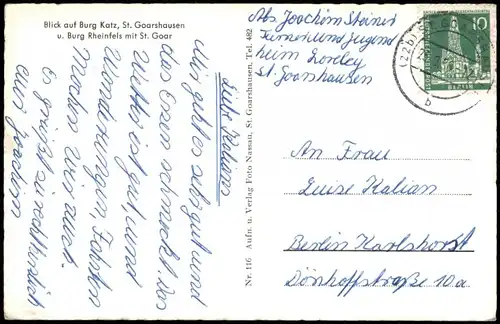 Blick auf Burg Katz, St. Goarshausen
u. Burg Rheinfels mit St. Goar
Liebe Kalians
Mir geht es sehr gut und
das Essen schmeckt. Das
Wetter ist gut, und
Wanderungen, Fahrten
Machen wir auch.
Es grüßt sie recht herzlich
euer Joachim
Nr. 116 Aufn. u. Verlag Foto Nassau, St. Goarshausen, Tel. 482
Abs Joachim Steiner
Turner und Jugend
heim Loreley
St. Goarshausen
10
DEUTSCHE BUNDESPOST
BERLIN
An Frau
Luise Kalian
Berlin Karlshorst
Dönhoffstraße 10a